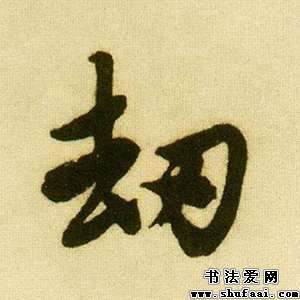 刧
书法爱网
www.shufaai.com